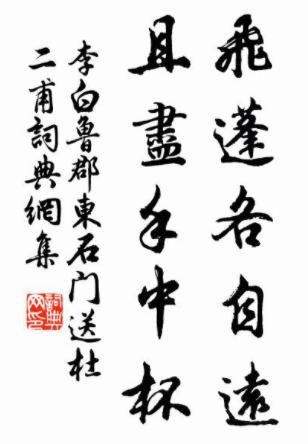 飛蓬各自遠
且盡手中杯
李白魯郡東石门送杜
二甫詞典網集
詞典網印